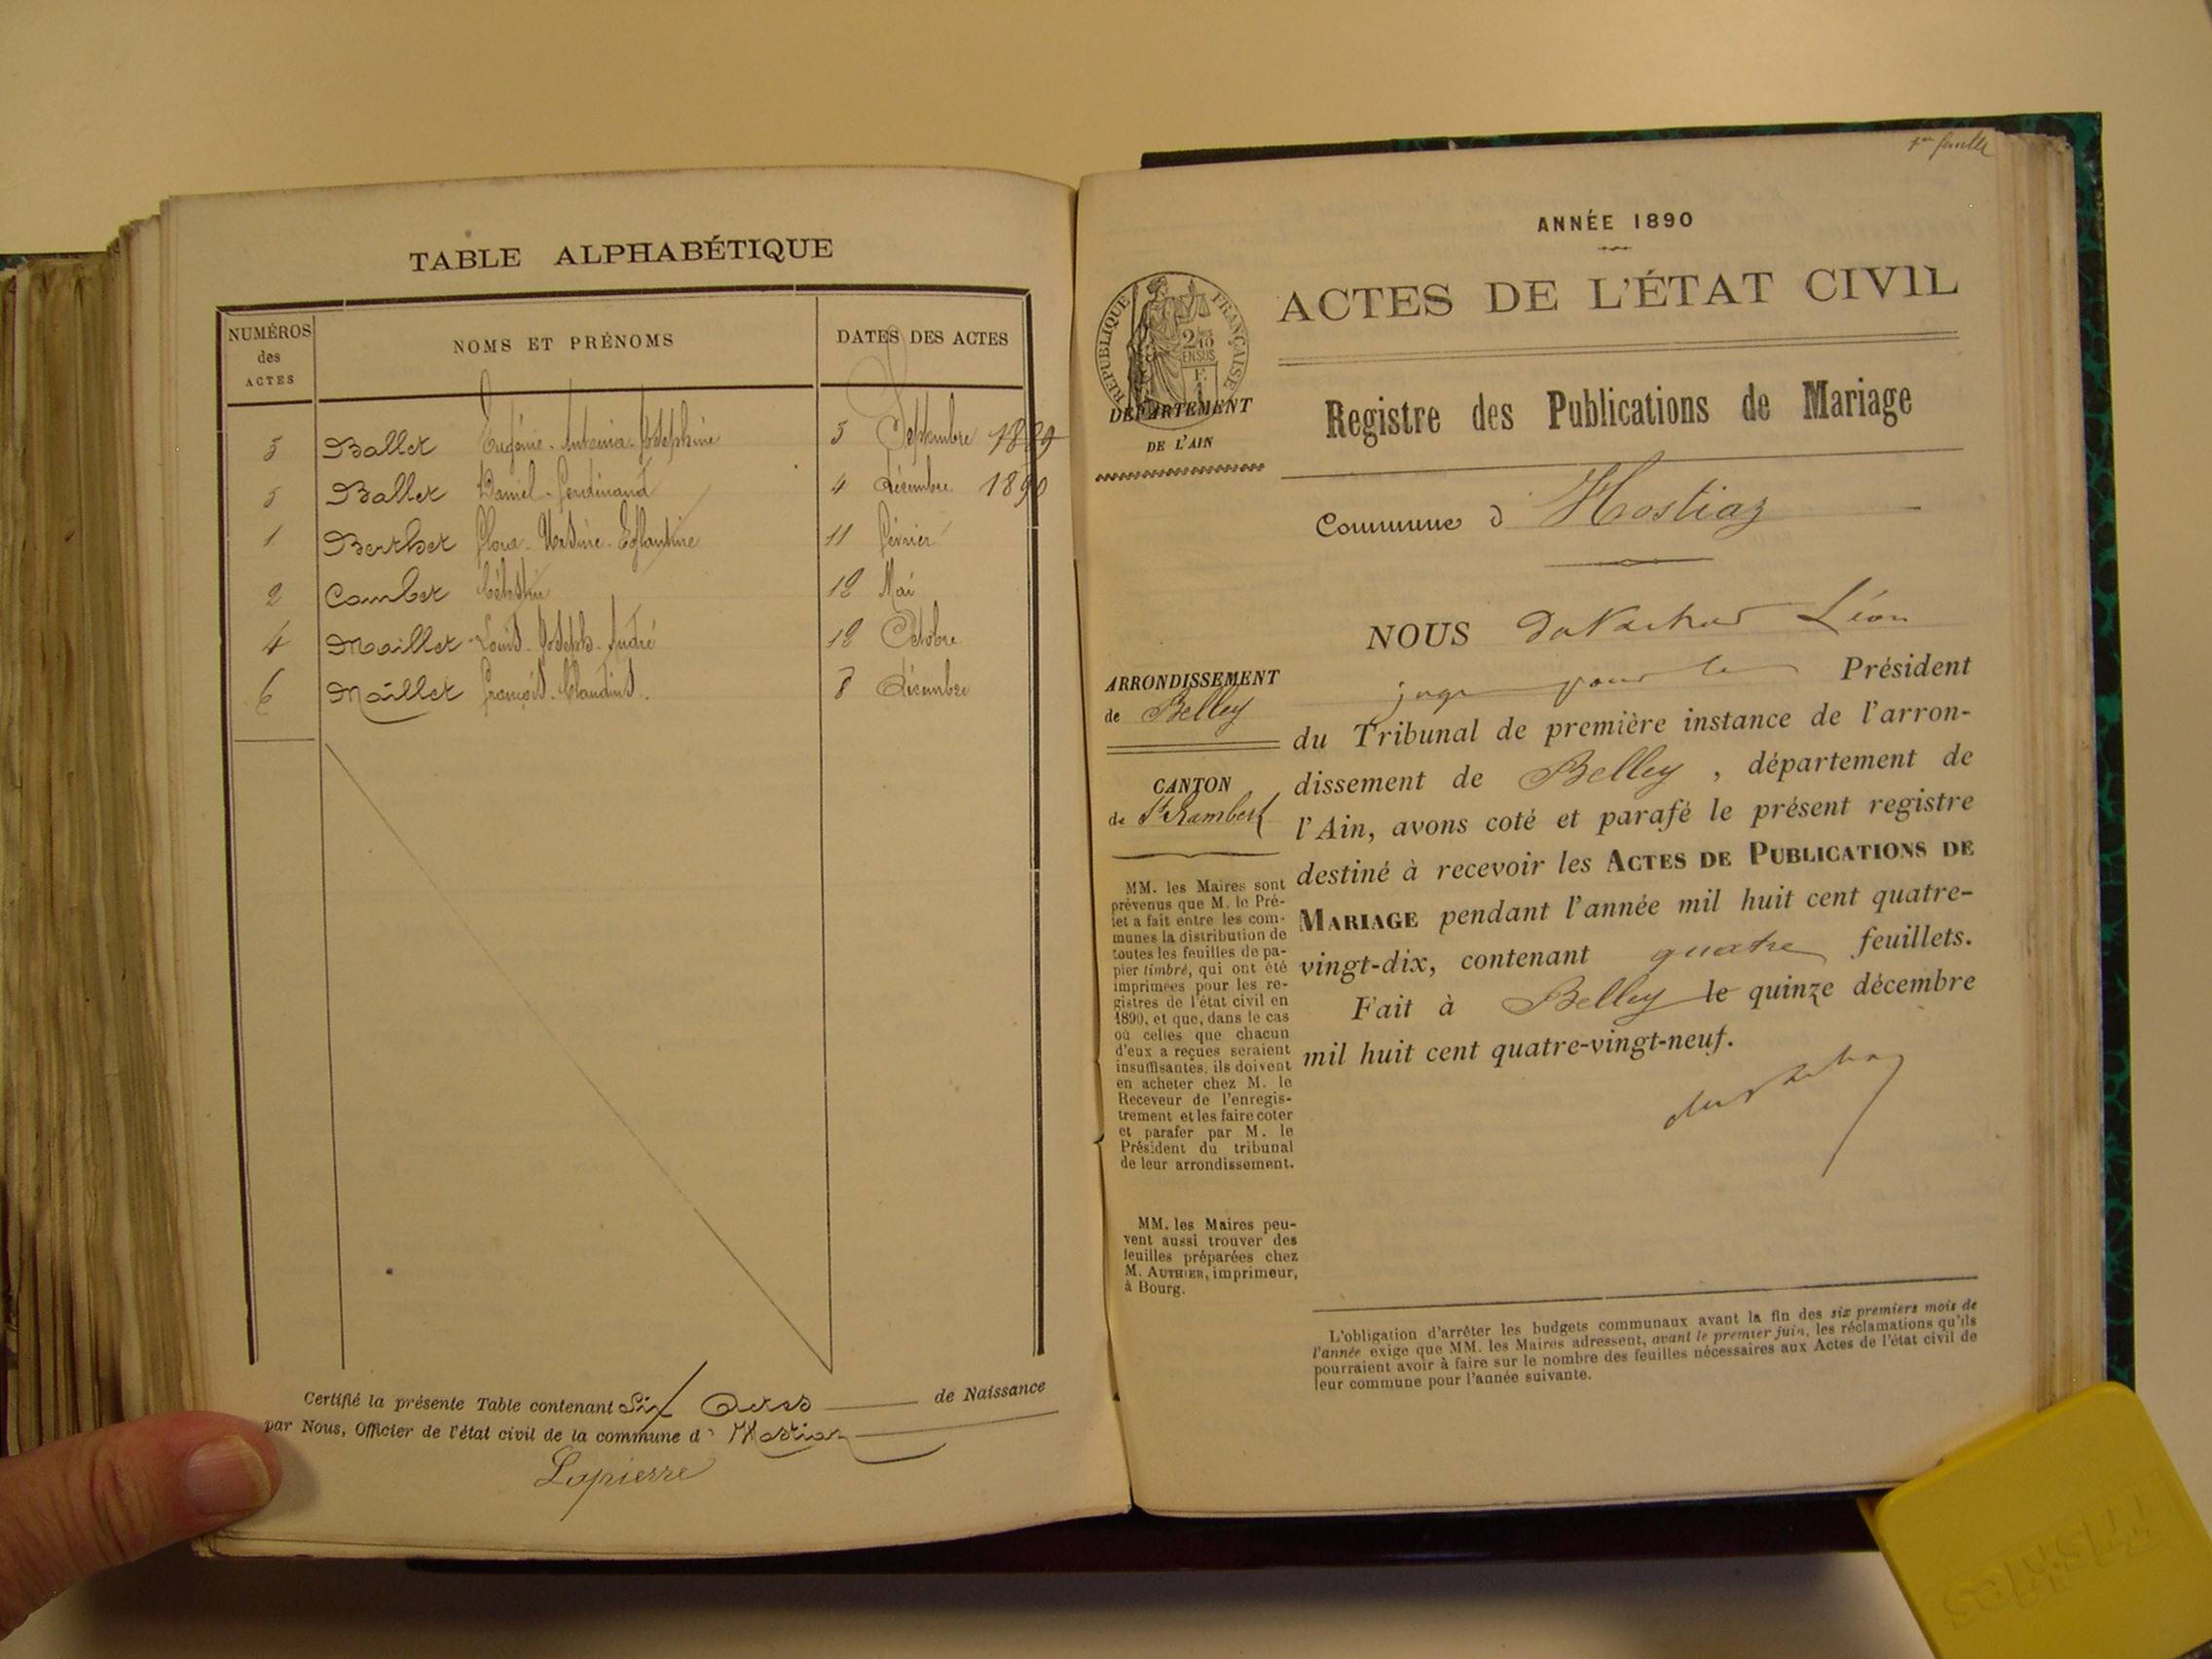 TABLE ALPHABÉTIQUE
NUMÉROS des ACTES
NOMS ET PRÉNOMS
DATES DES ACTES
3 Ballet Eugénie-Antonia-Joséphine 5 Septembre 1889
5 Ballet Daniel-Ferdinand 4 décembre 1890
1 Berthet 11 février
2 Combet Célestin 12 Mai
4 Maillet Louis-Joseph-André 12 Octobre
6 Maillet François-Claudius. 8 décembre
Certifié la présente Table contenant Six Actes de Naissance
par Nous, Officier de l'état civil de la commune d' Hostiaz
Lapierre
1er feuille
ANNÉE 1890
RÉPUBLIQUE FRANÇAISE
ACTES DE L'ÉTAT CIVIL
DÉPARTEMENT
DE L'AIN
Registre des Publications de Mariage
Commune d' Hostiaz
ARRONDISSEMENT
de Belley
CANTON
de St Rambert
MM. les Maires sont
prévenus que M. le Pré-
fet a fait entre les com-
munes la distribution de
toutes les feuilles de pa-
pier timbré, qui ont été
imprimées pour les re-
gistres de l'état civil en
1890, et que, dans le cas
où celles que chacun
d'eux a reçues seraient
insuffisantes, ils doivent
en acheter chez M. le
Receveur de l'enregis-
trement et les faire coter
et parafer par M. le
Président du tribunal
de leur arrondissement.
MM. les Maires peu-
vent aussi trouver des
feuilles préparées chez
M. AUTHIER, imprimeur,
à Bourg.
NOUS Léon
juge pour le Président
du Tribunal de première instance de l'arron-
dissement de Belley, département de
l'Ain, avons coté et parafé le présent registre
destiné à recevoir les ACTES DE PUBLICATIONS DE
MARIAGE pendant l'année mil huit cent quatre-
vingt-dix, contenant quatre feuillets.
Fait à Belley le quinze décembre
mil huit cent quatre-vingt-neuf.
L'obligation d'arrêter les budgets communaux avant la fin des six premiers mois de
l'année exige que MM. les Maires adressent, avant le premier juin, les réclamations qu'ils
pourraient avoir à faire sur le nombre des feuilles nécessaires aux Actes de l'état civil de
leur commune pour l'année suivante.